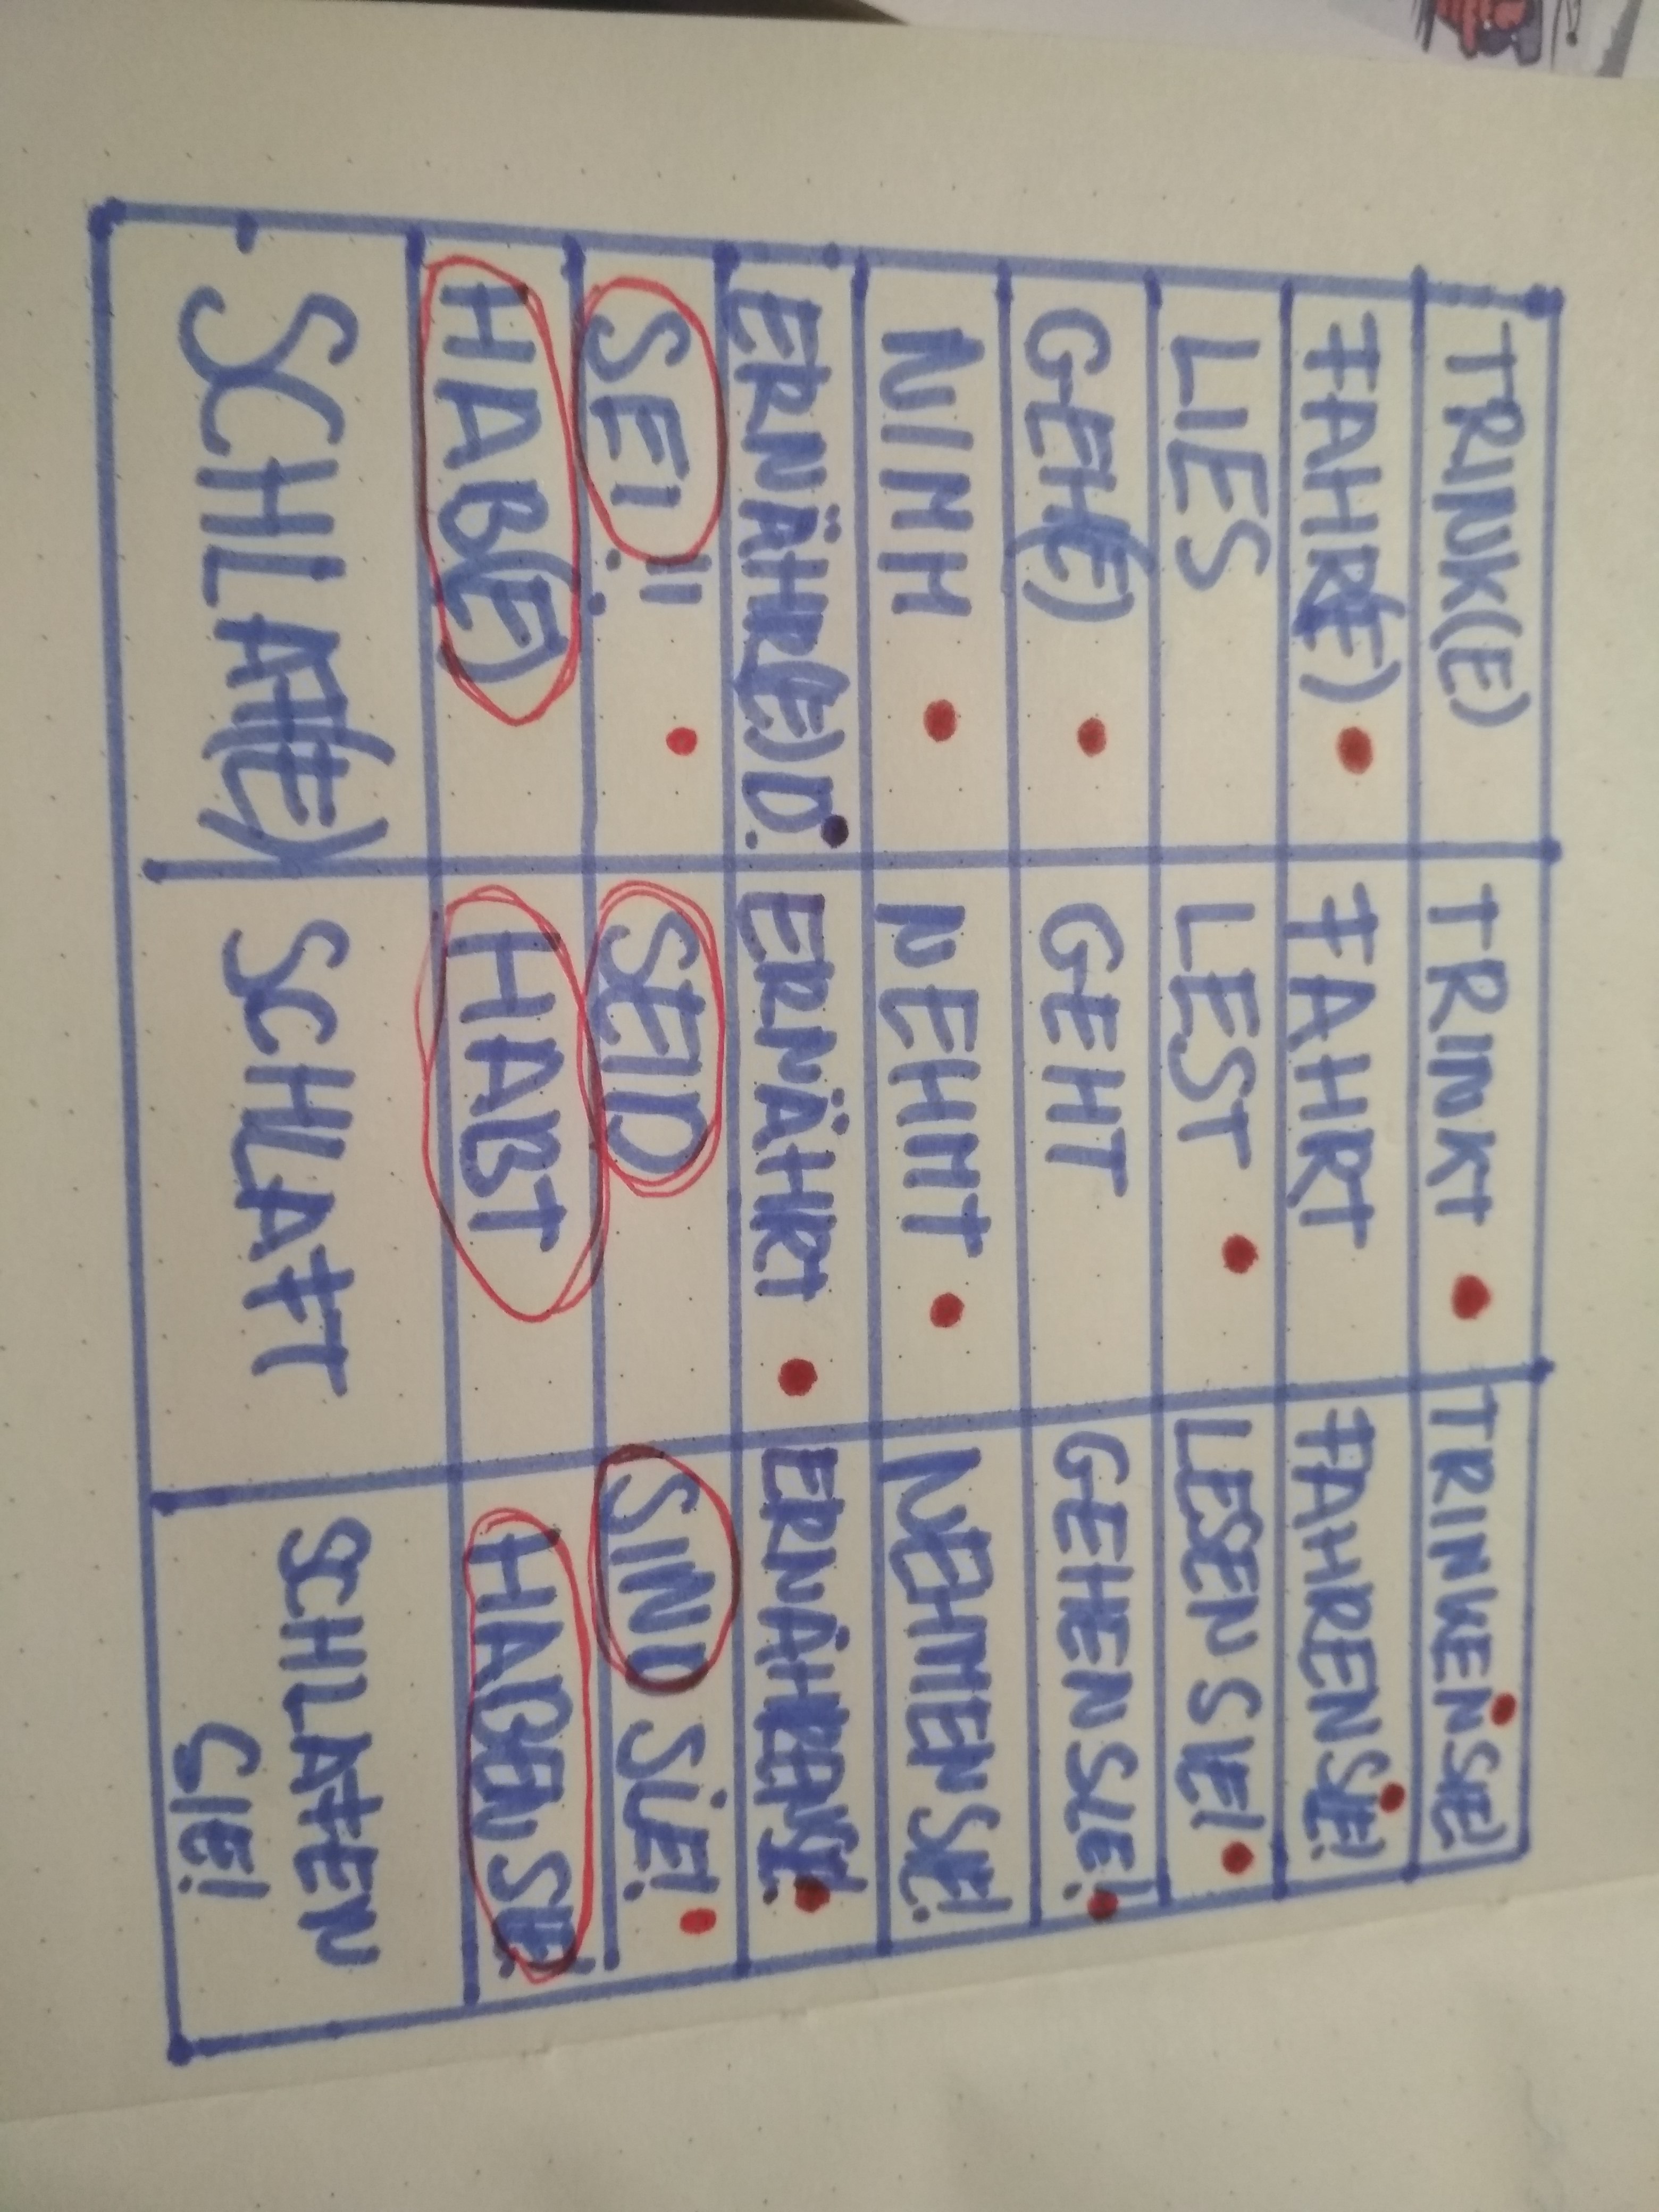 TRINK(E) TRINKT TRINKEN SIE!
FAHR(E) FAHRT FAHREN SIE!
LIES LEST LESEN SIE!
GEH(E) GEHT GEHEN SIE!
NIMM NEHMT NEHMEN SIE!
ERNÄHR(E) D. ERNÄHRT ERNÄHREN SIE!
SEI!! SEID SIND SIE!
HAB(E) HABT HABEN SIE!
SCHLAF(E) SCHLAFT SCHLAFEN
SIE!